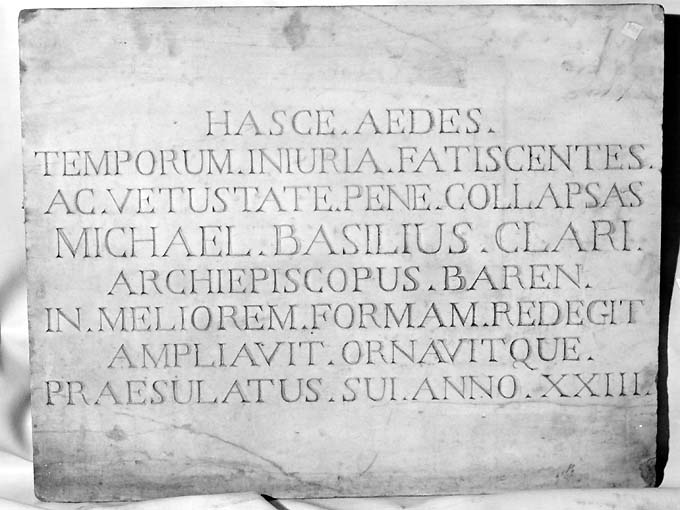 HASCE.AEDES.
TEMPORUM.INIURIA.FATISCENTES.
AC.VETUSTATE.PENE.COLLAPSAS
MICHAEL.BASILIUS.CLARI.
ARCHIEPISCOPUS.BAREN.
IN.MELIOREM.FORMAM.REDEGIT
AMPLIAVIT.ORNAVITQUE.
PRAESULATUS.SUI.ANNO.XXIII.